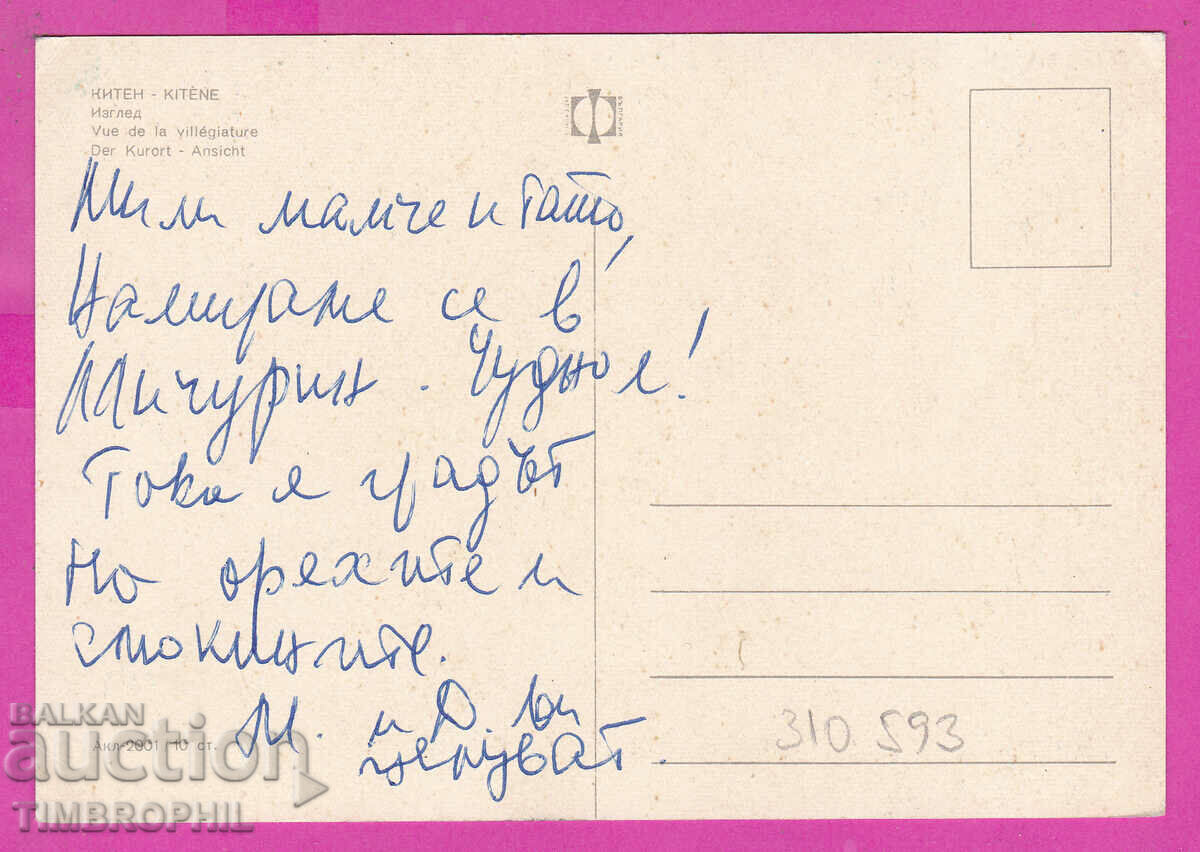 КИТЕН - KITÈNE
Изглед
Vue de la villégiature
Der Kurort - Ansicht
БЪЛГАРИЯ
Мили мамче и тато,
Намираме се в
Мичурин. Чудно е!
Това е градът
на орехите и
смокините.
М. и Д. ви
целуват.
Акл-2001 10 ст.
310 593
BALKAN
auction
TIMBROPHIL